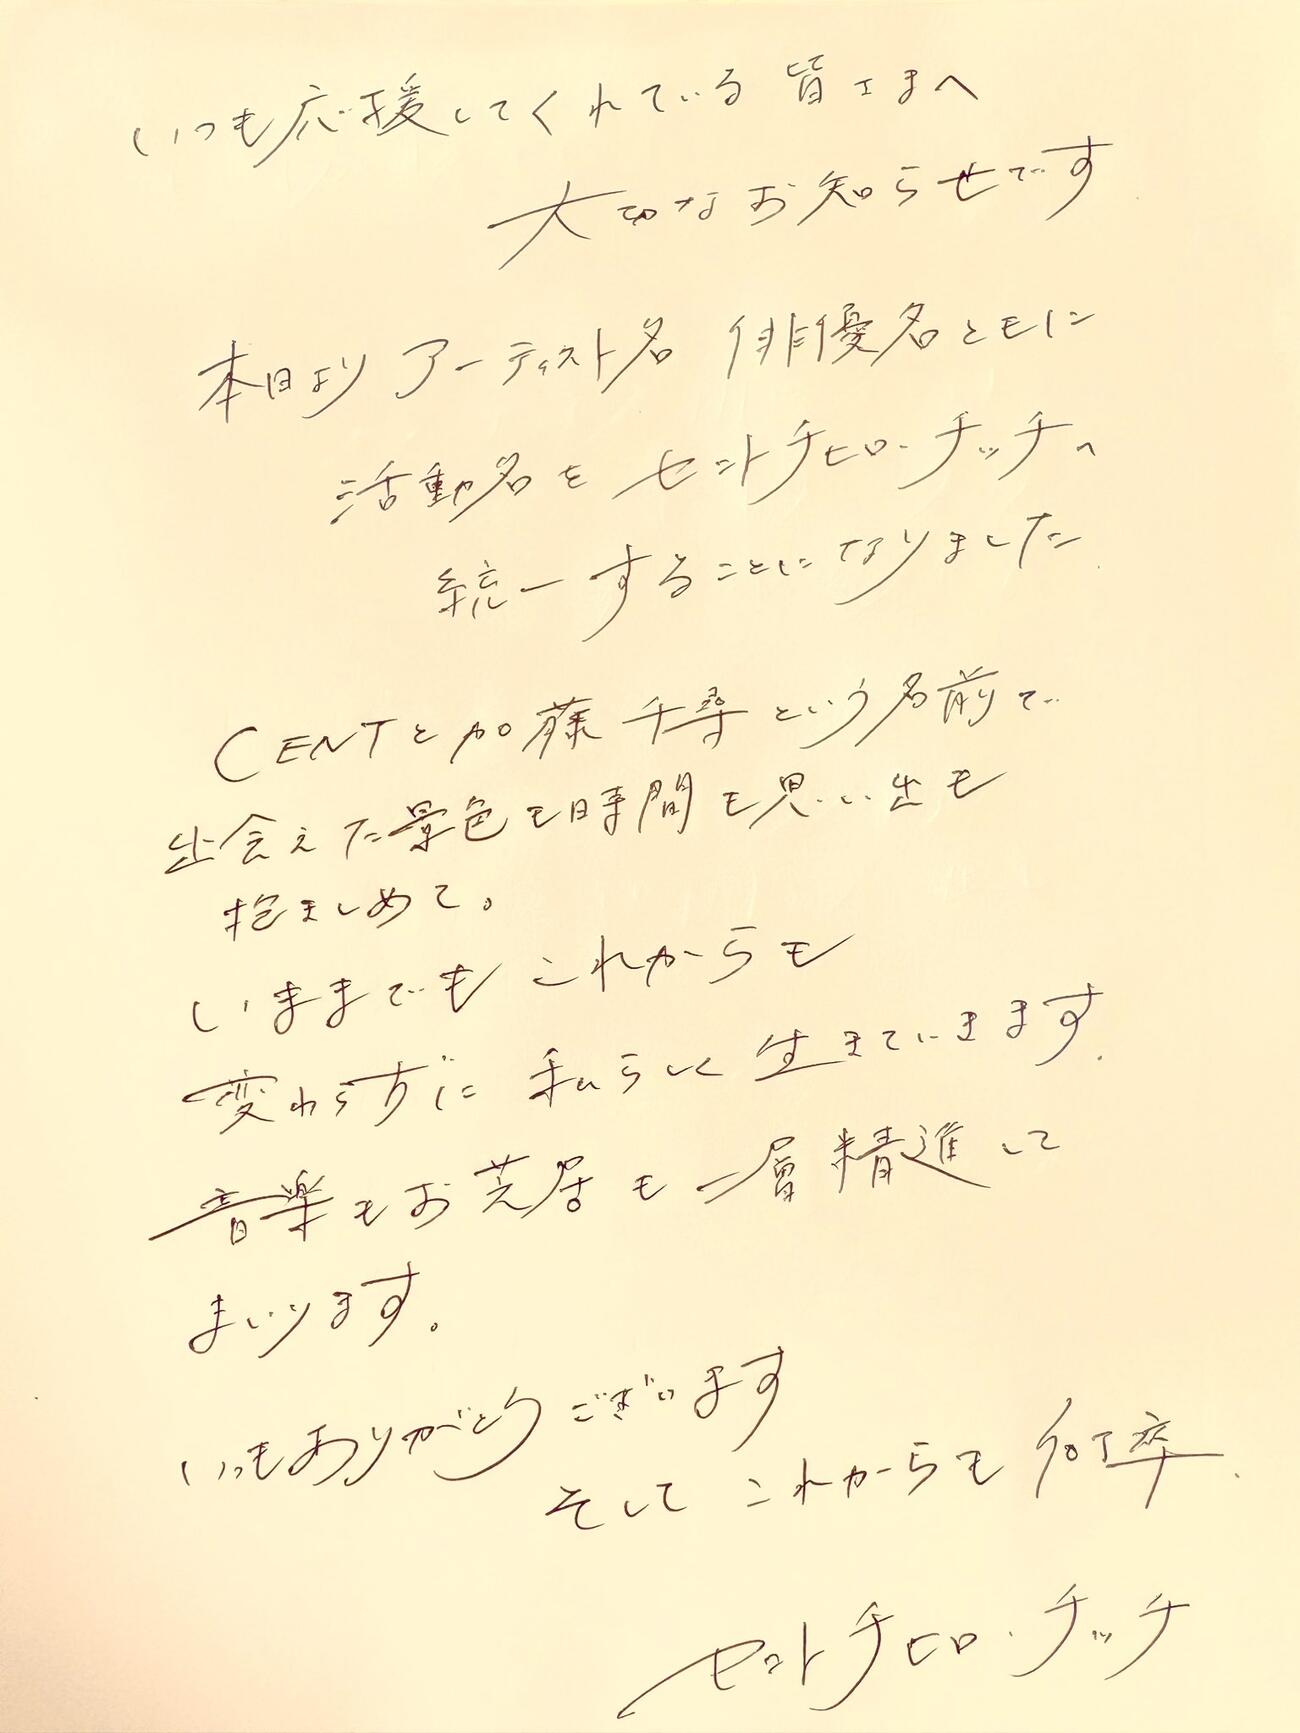 いつも応援してくれている 皆さまへ
大切なお知らせです
本日より アーティスト名 俳優名ともに
活動名を セントチヒロ・チッチへ
統一することになりました
CENTと加藤千尋という名前で
出会えた景色も時間も思い出も
抱きしめて。
いままでも これからも
変わらずに 私らしく 生きていきます.
音楽もお芝居も 一層精進して
まいります。
いつもありがとうございます
そして これからも 何卒.
セントチヒロ・チッチ